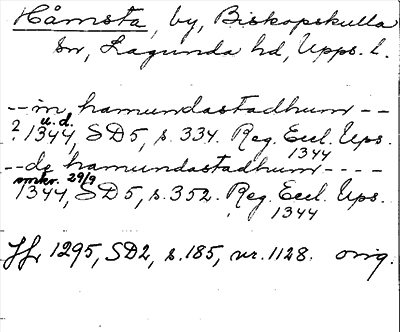 Håmsta, by, Biskopskulla
sn, Lagunda hd, Upps. l.
-- in hamundastadhum --
u. d.
? 1344, SD5, s. 334. Reg. Eccl. Ups.
1344
-- de hamundastadhum ----
omkr. 29/9
1344, SD5, s. 352. Reg. Eccl. Ups.
1344
Jfr 1295, SD2, s. 185, nr. 1128. orig.